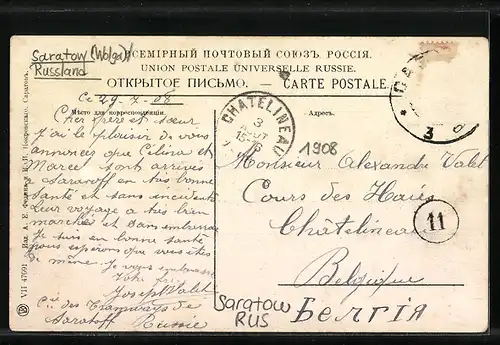 Saratow (Wolga)
Russland
ВСЕМІРНЫЙ ПОЧТОВЫЙ СОЮЗЪ. РОССІЯ.
UNION POSTALE UNIVERSELLE RUSSIE.
ОТКРЫТОЕ ПИСЬМО. — CARTE POSTALE.
Ce 29-7-08
Мѣсто для корреспонденціи.
Адресъ.
Cher frère et sœur
J'ai le plaisir de vous
annoncer que Celina et
Marcel sont arrivés
a Saratoff en très bonne
santé et sans incidents
Leur voyage a très bien
marché et sans embarras
Je suis en bonne santé
nous espérons que vous êtes
de même. Je vous embrasse
Joseph Valet
Cie des Tramways de
Saratoff Russie
CHATELINEAU
3
1908
3
Monsieur Alexandre Valet
Cours des Haies
Châtelineau
11
Belgique
Saratow
RUS
Бельгія
VII 47691